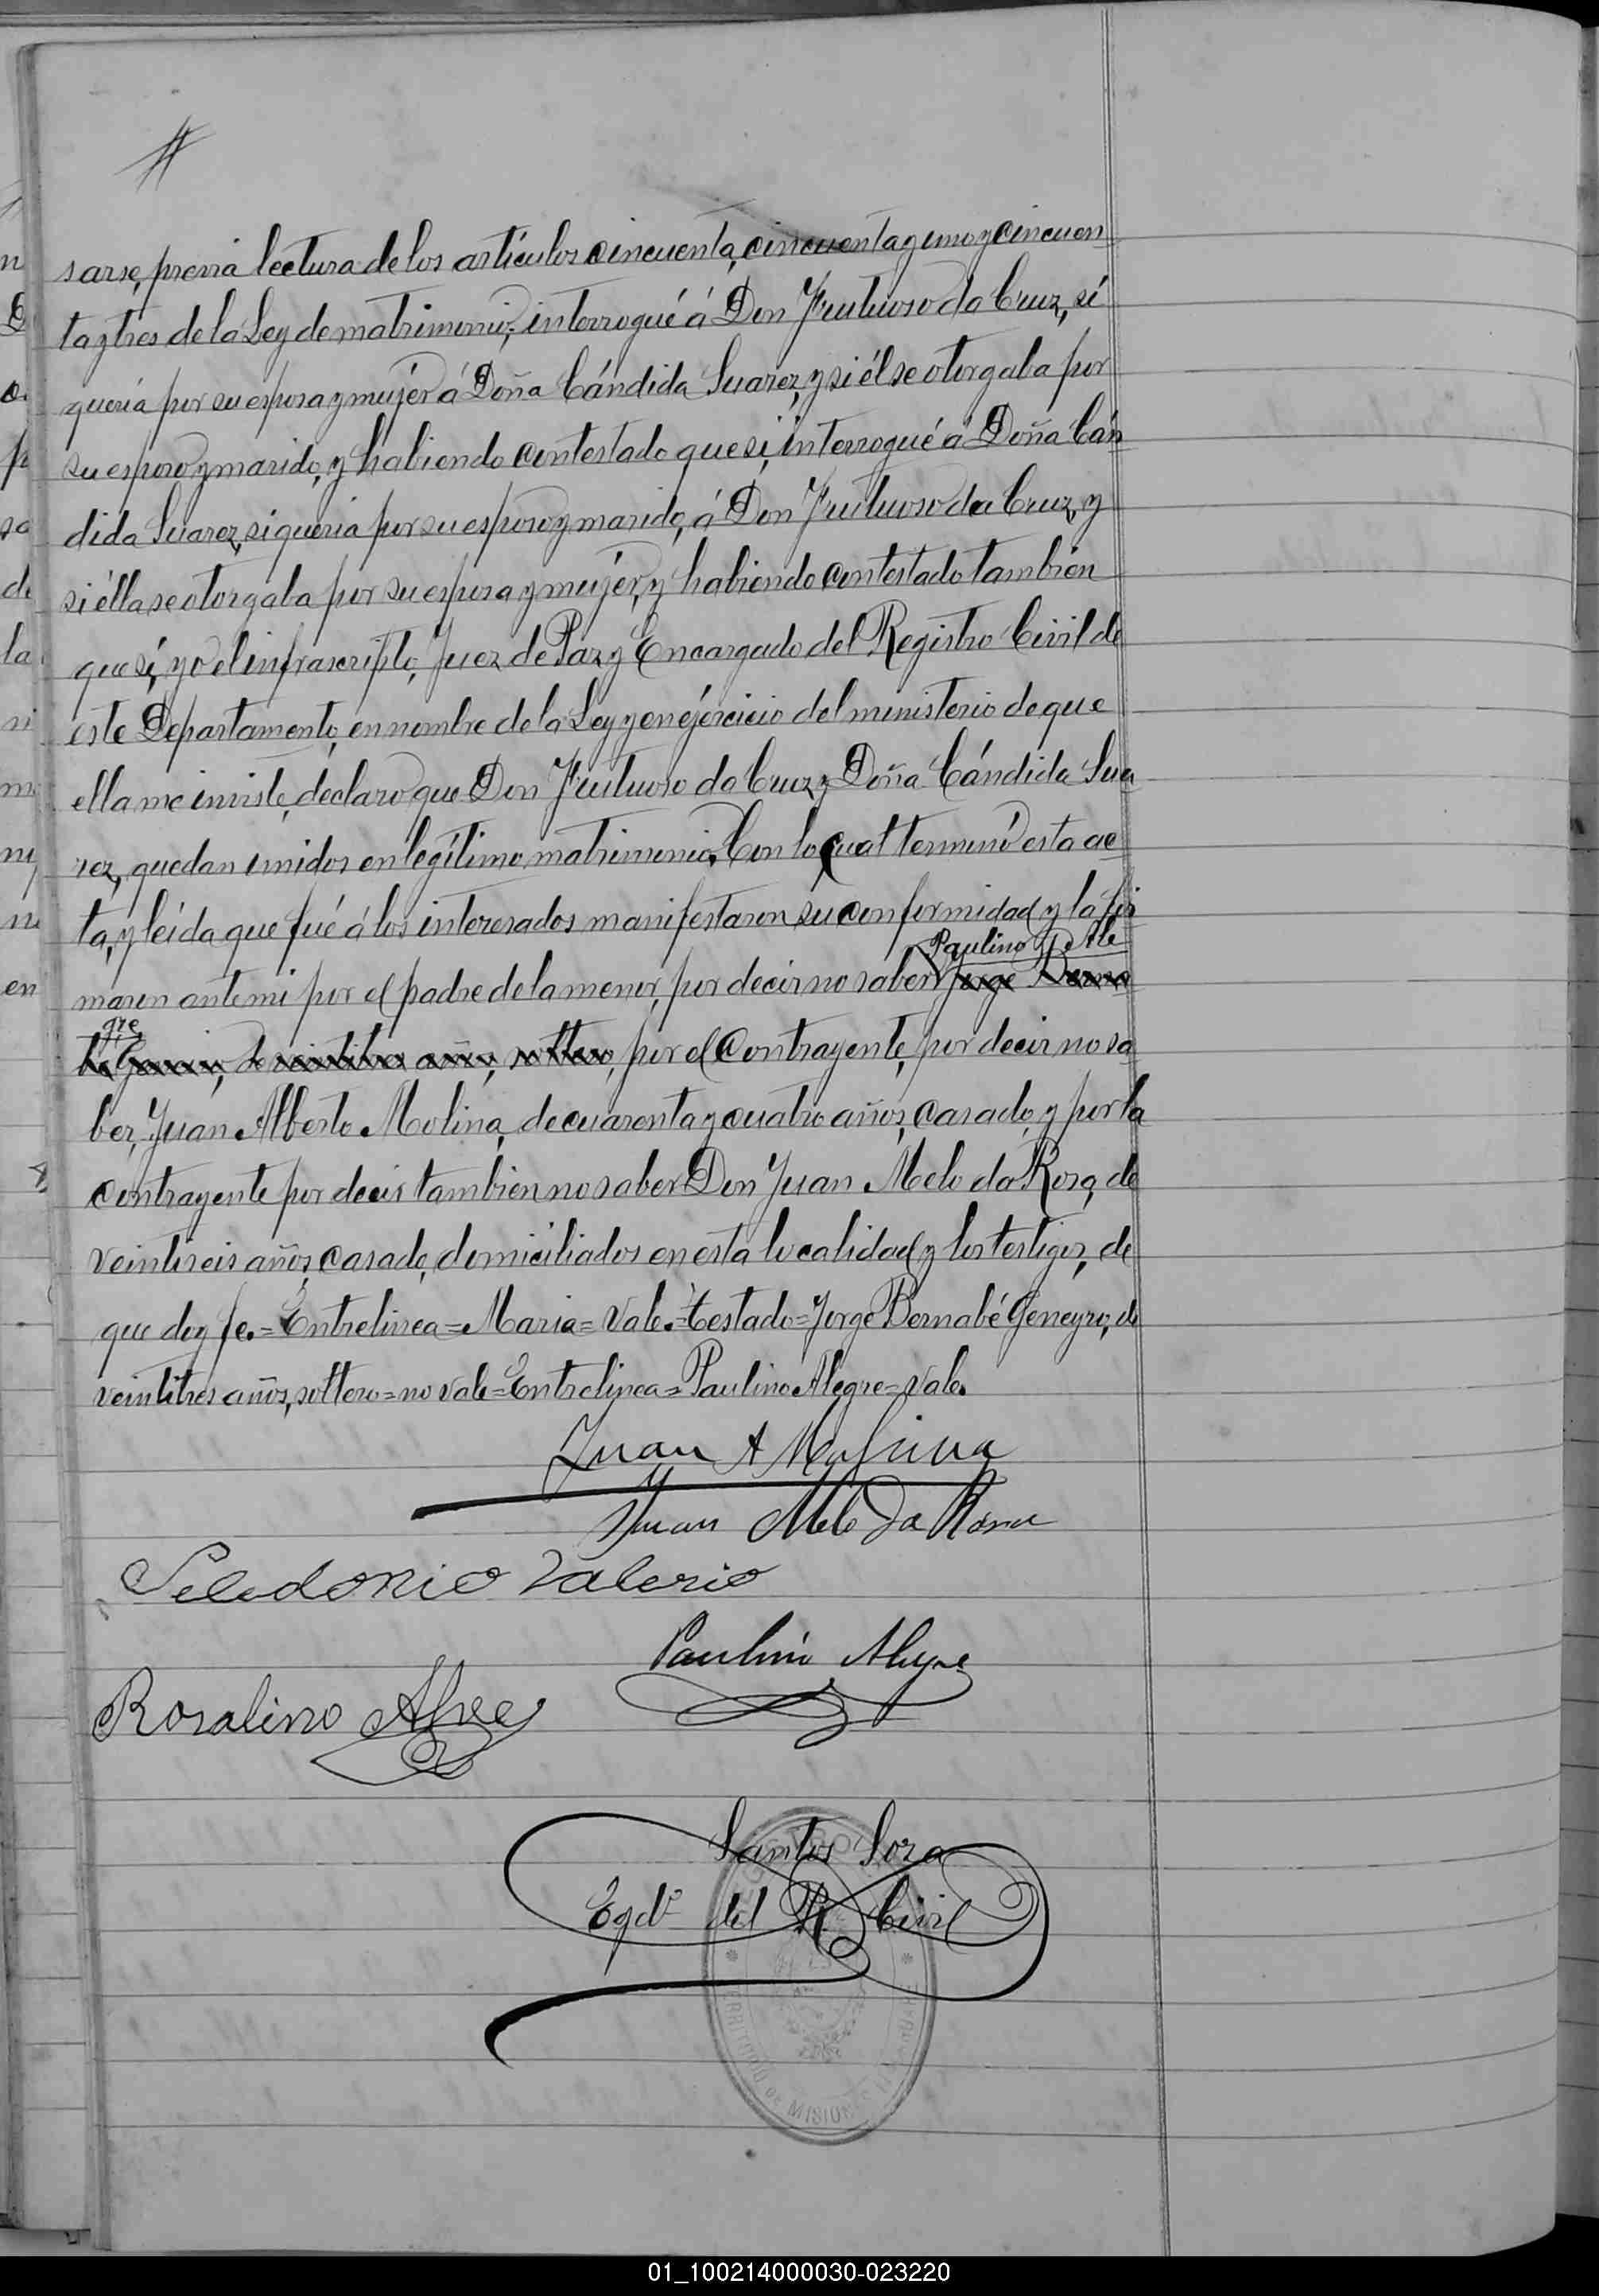 sarse, previa lectura de los artículos cincuenta, cincuenta y uno y cincuen
ta y tres de la Ley de matrimonio, interrogué á Don Frutuoso da Cruz, si
quería por su esposa y mujér á Doña Cándida Suarez, y si él se otorgaba por
su esposo y marido, y habiendo contestado que si, interrogué á Doña Cán
dida Suarez, si queria por su esposo y marido, á Don Frutuoso da Cruz, y
si élla se otorgaba por su esposa y mujér, y habiendo contestado también
que sí, yo el infrascripto, Juez de Paz y Encargado del Registro Civil de
este Departamento, en nombre de la Ley y en ejércicio del ministerio de que
ella me inviste, declaro que Don Frutuoso da Cruz y Doña Cándida Sua
rez, quedan unidos en legítimo matrimonio. Con lo cual terminó esta ac
ta, y leída que fué á los interesados manifestaron su conformidad y la fir
Paulino Ale
maron ante mi por el padre de la menor, por decir no saber Jorge Berna
gre
bé Geneyro, de veintitres años, soltero, por el contrayente, por decir no sa
ber, Juan Alberto Molina, de cuarenta y cuatro años, casado, y por la
contrayente por decir tambien no saber Don Juan Melo da Rosa, de
veintiseis años, casado, domiciliados en esta localidad y los testigos, de
que doy fe.=Entrelinea=Maria=Vale.=Testado=Jorge Bernabé Geneyro, de
veintitres años, soltero=no vale=Entrelinea=Paulino Alegre=Vale.
Juan A Molina
Juan Melo da Rosa
Seledonio Valerio
Paulino Alegre
Rosalino
Santos Soza
Egdo. del R. Civil
TERRITORIO DE MISIONES
01_100214000030-023220